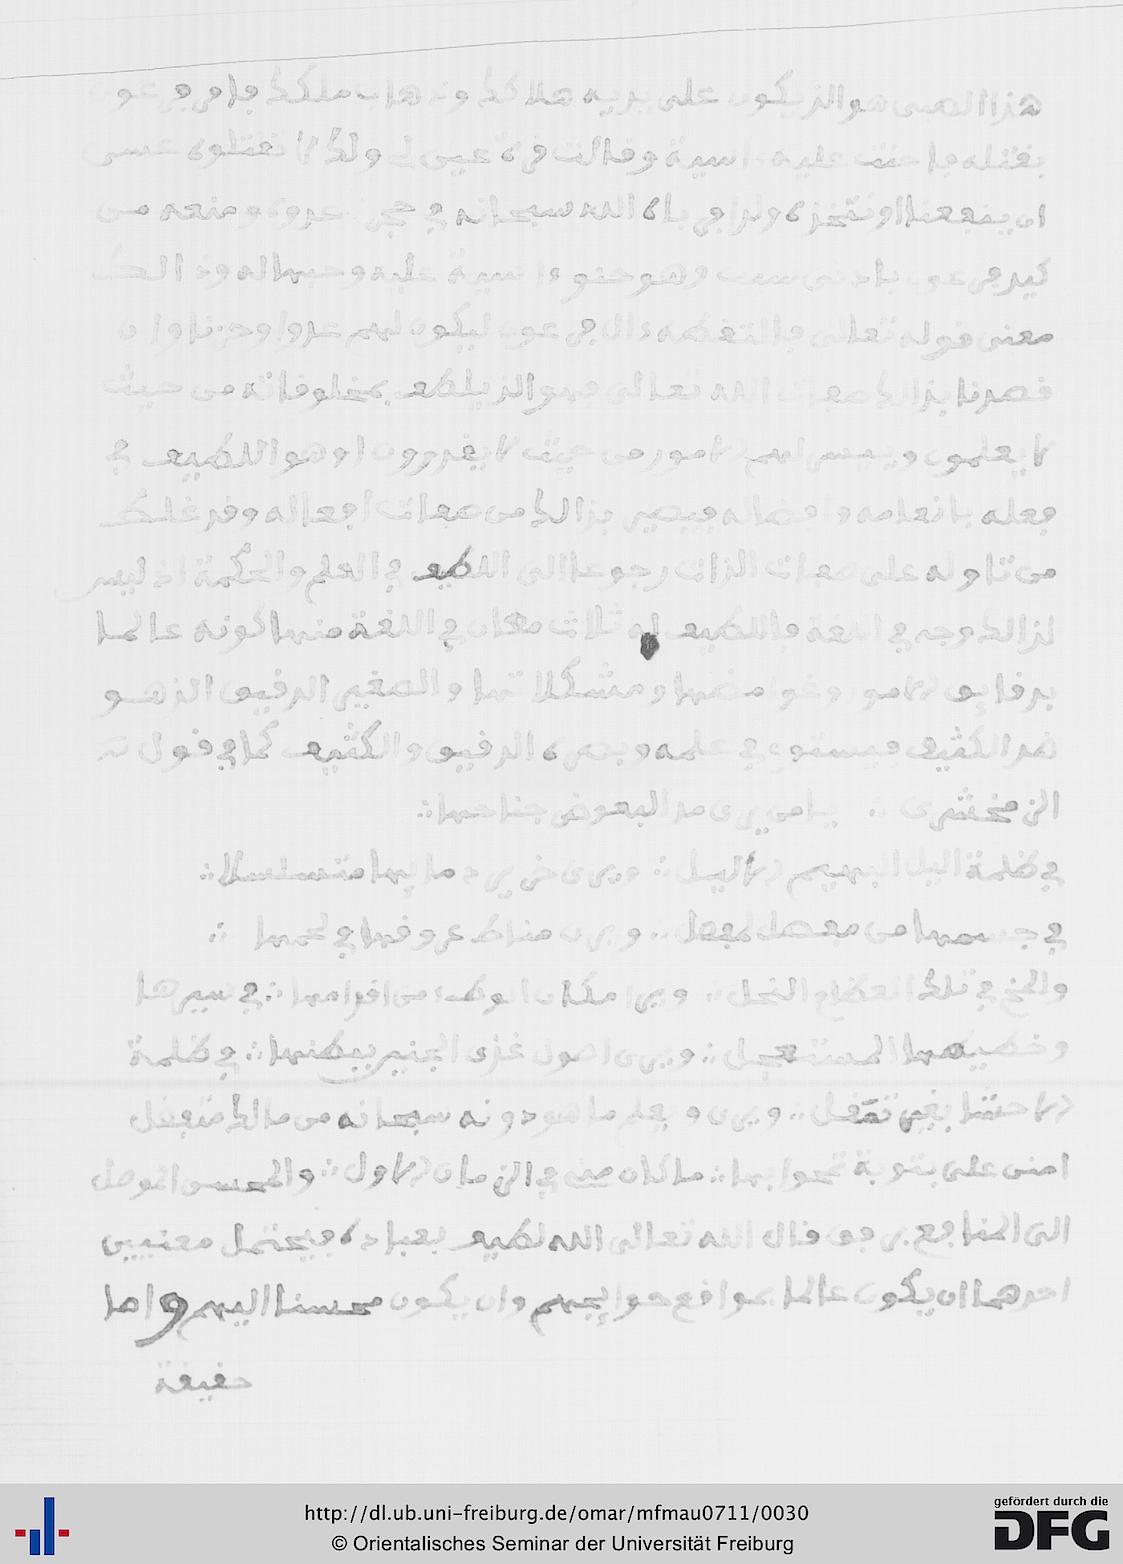 هذا الصبى هو الذ يكون على يديه هلاكك وذهاب ملكك فامر فرعون
بقتله فاحنت عليه ءاسية وقالت قرة عين لى ولك لا تقتلوه عسى
ان ينفعنا او نتخذه ولدا فرباه الله سبحانه في حجر عدوه ومنعه من
كيد فرعون بادنى سبب وهو حنو ءاسية عليه وحبها له وذالك
معنى قوله تعالى فالتقطه ءال فرعون ليكون لهم عدوا وحزنا وان
قصدنا بذالك صفات الله تعالى فهو الذ يلطف بمخلوقاته من حيث
لا يعلمون وييسر لهم الامور من حيث لا يقدرون او هو اللطيف في
فعله بانعامه وافضاله فيصير بذالك من صفات افعاله وقد غلط
من تاوله على صفات الذات رجوعا الى اللطيف في العلم والحكمة اذ ليس
لذالك وجه في اللغة فاللطيف له ثلاث معان في اللغة منها كونه عالما
بدقايق الامور وغوامضها ومشكلاتها والصغير الدقيق الذ هو
ضد الكثيف فيستوي في علمه وبصره الدقيق والكثيف كما في قول
الزمخشرى ؞ يا من يرى مد البعوض جناحها ؞
في ظلمة اليل البهيم الاليل ؞ ويرى خرير دمايها متسلسلا ؞
في جسمها من مفصل لمفصل ؞ ويرى مناط عروقها في لحمها ؞
والمخ في تلك العظام النحل ؞ ويرى مكان الوطء من اقدامها ؞ في سيرها
وخطيطها المستعجل ؞ ويرى اصول غذى الجنين ببطنها ؞ في ظلمة
الاحشا بغير تمقل ؞ ويرى ويعلم ما هو دونه سبحانه من مالك متفضل
امنن على بتوبة تمحوا بها ؞ ما كان منى في الزمان الاول ؞ والمحسن الموصل
الى المنافع برفق قال الله تعالى الله لطيف بعباده فيحتمل معنيين
احدهما ان يكون عالما بمواقع حوايجهم وان يكون محسنا اليهم واما
حقيقة
http://dl.ub.uni-freiburg.de/omar/mfmau0711/0030
© Orientalisches Seminar der Universität Freiburg
gefördert durch die
DFG